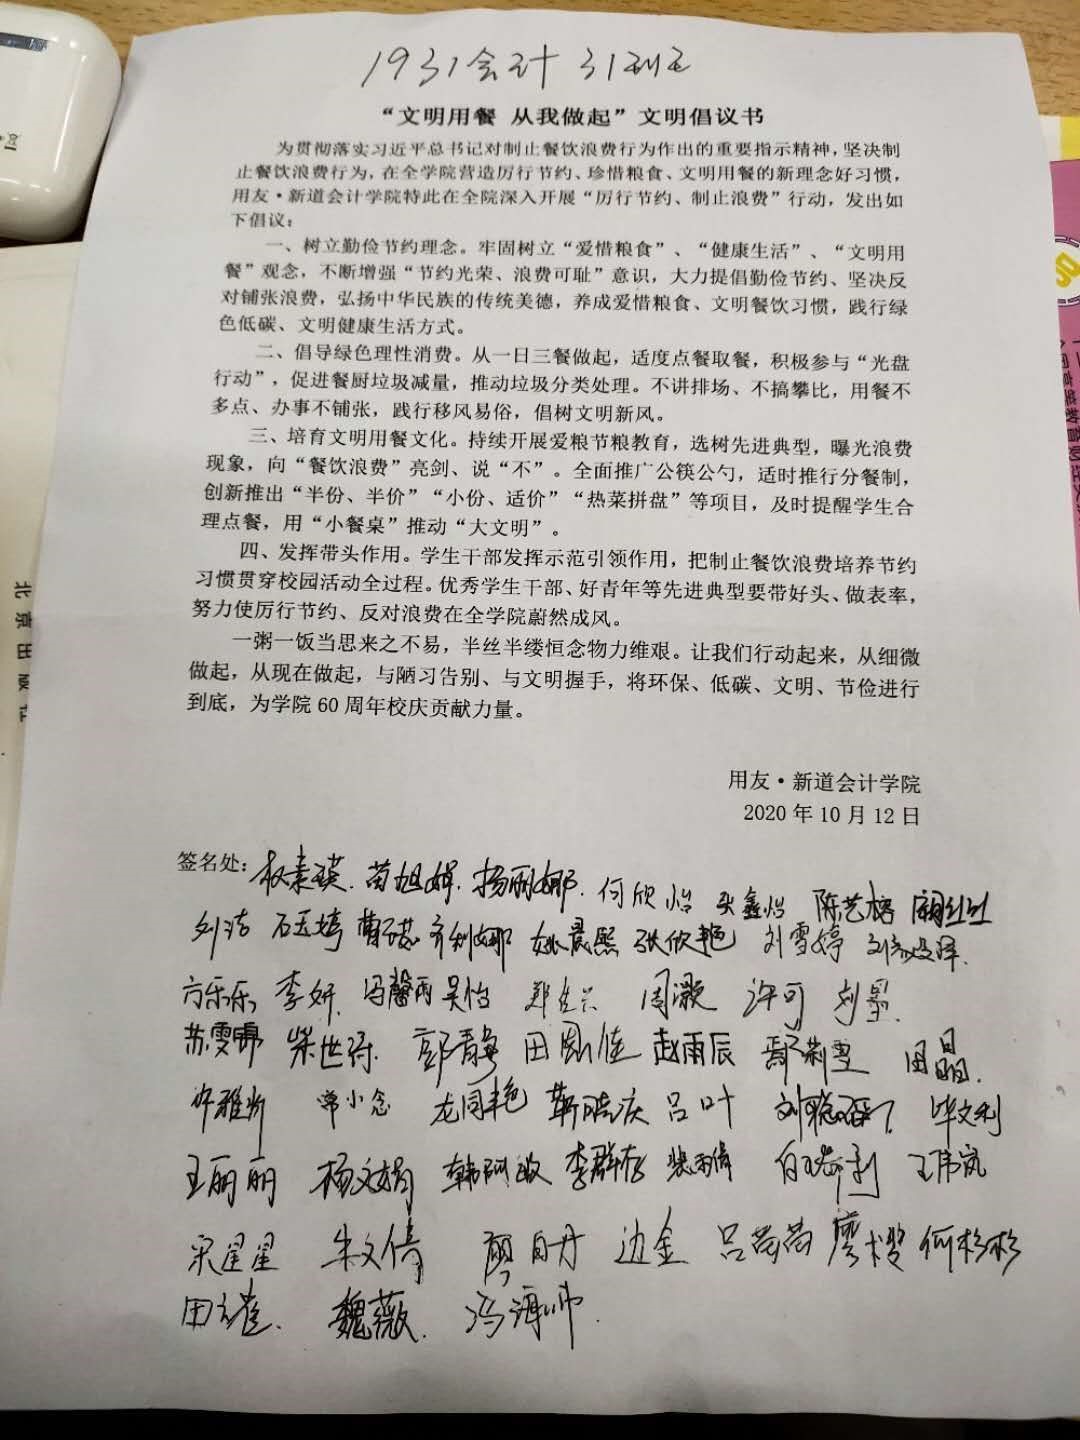 1931会计31班
“文明用餐 从我做起”文明倡议书
为贯彻落实习近平总书记对制止餐饮浪费行为作出的重要指示精神，坚决制
止餐饮浪费行为，在全学院营造厉行节约、珍惜粮食、文明用餐的新理念好习惯，
用友·新道会计学院特此在全院深入开展“厉行节约、制止浪费”行动，发出如
下倡议：
一、树立勤俭节约理念。牢固树立“爱惜粮食”、“健康生活”、“文明用
餐”观念，不断增强“节约光荣、浪费可耻”意识，大力提倡勤俭节约、坚决反
对铺张浪费，弘扬中华民族的传统美德，养成爱惜粮食、文明餐饮习惯，践行绿
色低碳、文明健康生活方式。
二、倡导绿色理性消费。从一日三餐做起，适度点餐取餐，积极参与“光盘
行动”，促进餐厨垃圾减量，推动垃圾分类处理。不讲排场、不搞攀比，用餐不
多点、办事不铺张，践行移风易俗，倡树文明新风。
三、培育文明用餐文化。持续开展爱粮节粮教育，选树先进典型，曝光浪费
现象，向“餐饮浪费”亮剑、说“不”。全面推广公筷公勺，适时推行分餐制，
创新推出“半份、半价”“小份、适价”“热菜拼盘”等项目，及时提醒学生合
理点餐，用“小餐桌”推动“大文明”。
四、发挥带头作用。学生干部发挥示范引领作用，把制止餐饮浪费培养节约
习惯贯穿校园活动全过程。优秀学生干部、好青年等先进典型要带好头、做表率，
努力使厉行节约、反对浪费在全学院蔚然成风。
一粥一饭当思来之不易，半丝半缕恒念物力维艰。让我们行动起来，从细微
做起，从现在做起，与陋习告别、与文明握手，将环保、低碳、文明、节俭进行
到底，为学院60周年校庆贡献力量。
用友·新道会计学院
2020年10月12日
签名处：权素瑛.苗旭娟.杨丽娜.何欣怡 张鑫怡 陈艺榕
刘洁 石玉婷 姚晨熙 张欣艳 刘雪婷
方乐乐 李妍 冯馨雨 吴怡 周灏 许可 刘星
苏雯娜 柴世弼 郭静 田凯佳 赵雨辰 田晶.
许雅昕 常小念 龙周艳 靳晓庆 吕叶 毕文利
王丽丽 杨文娟 李群存 王伟岚
宋星星 朱文倩 边金 吕茵茵 廖樱 何杉杉
魏薇.
北京出版社